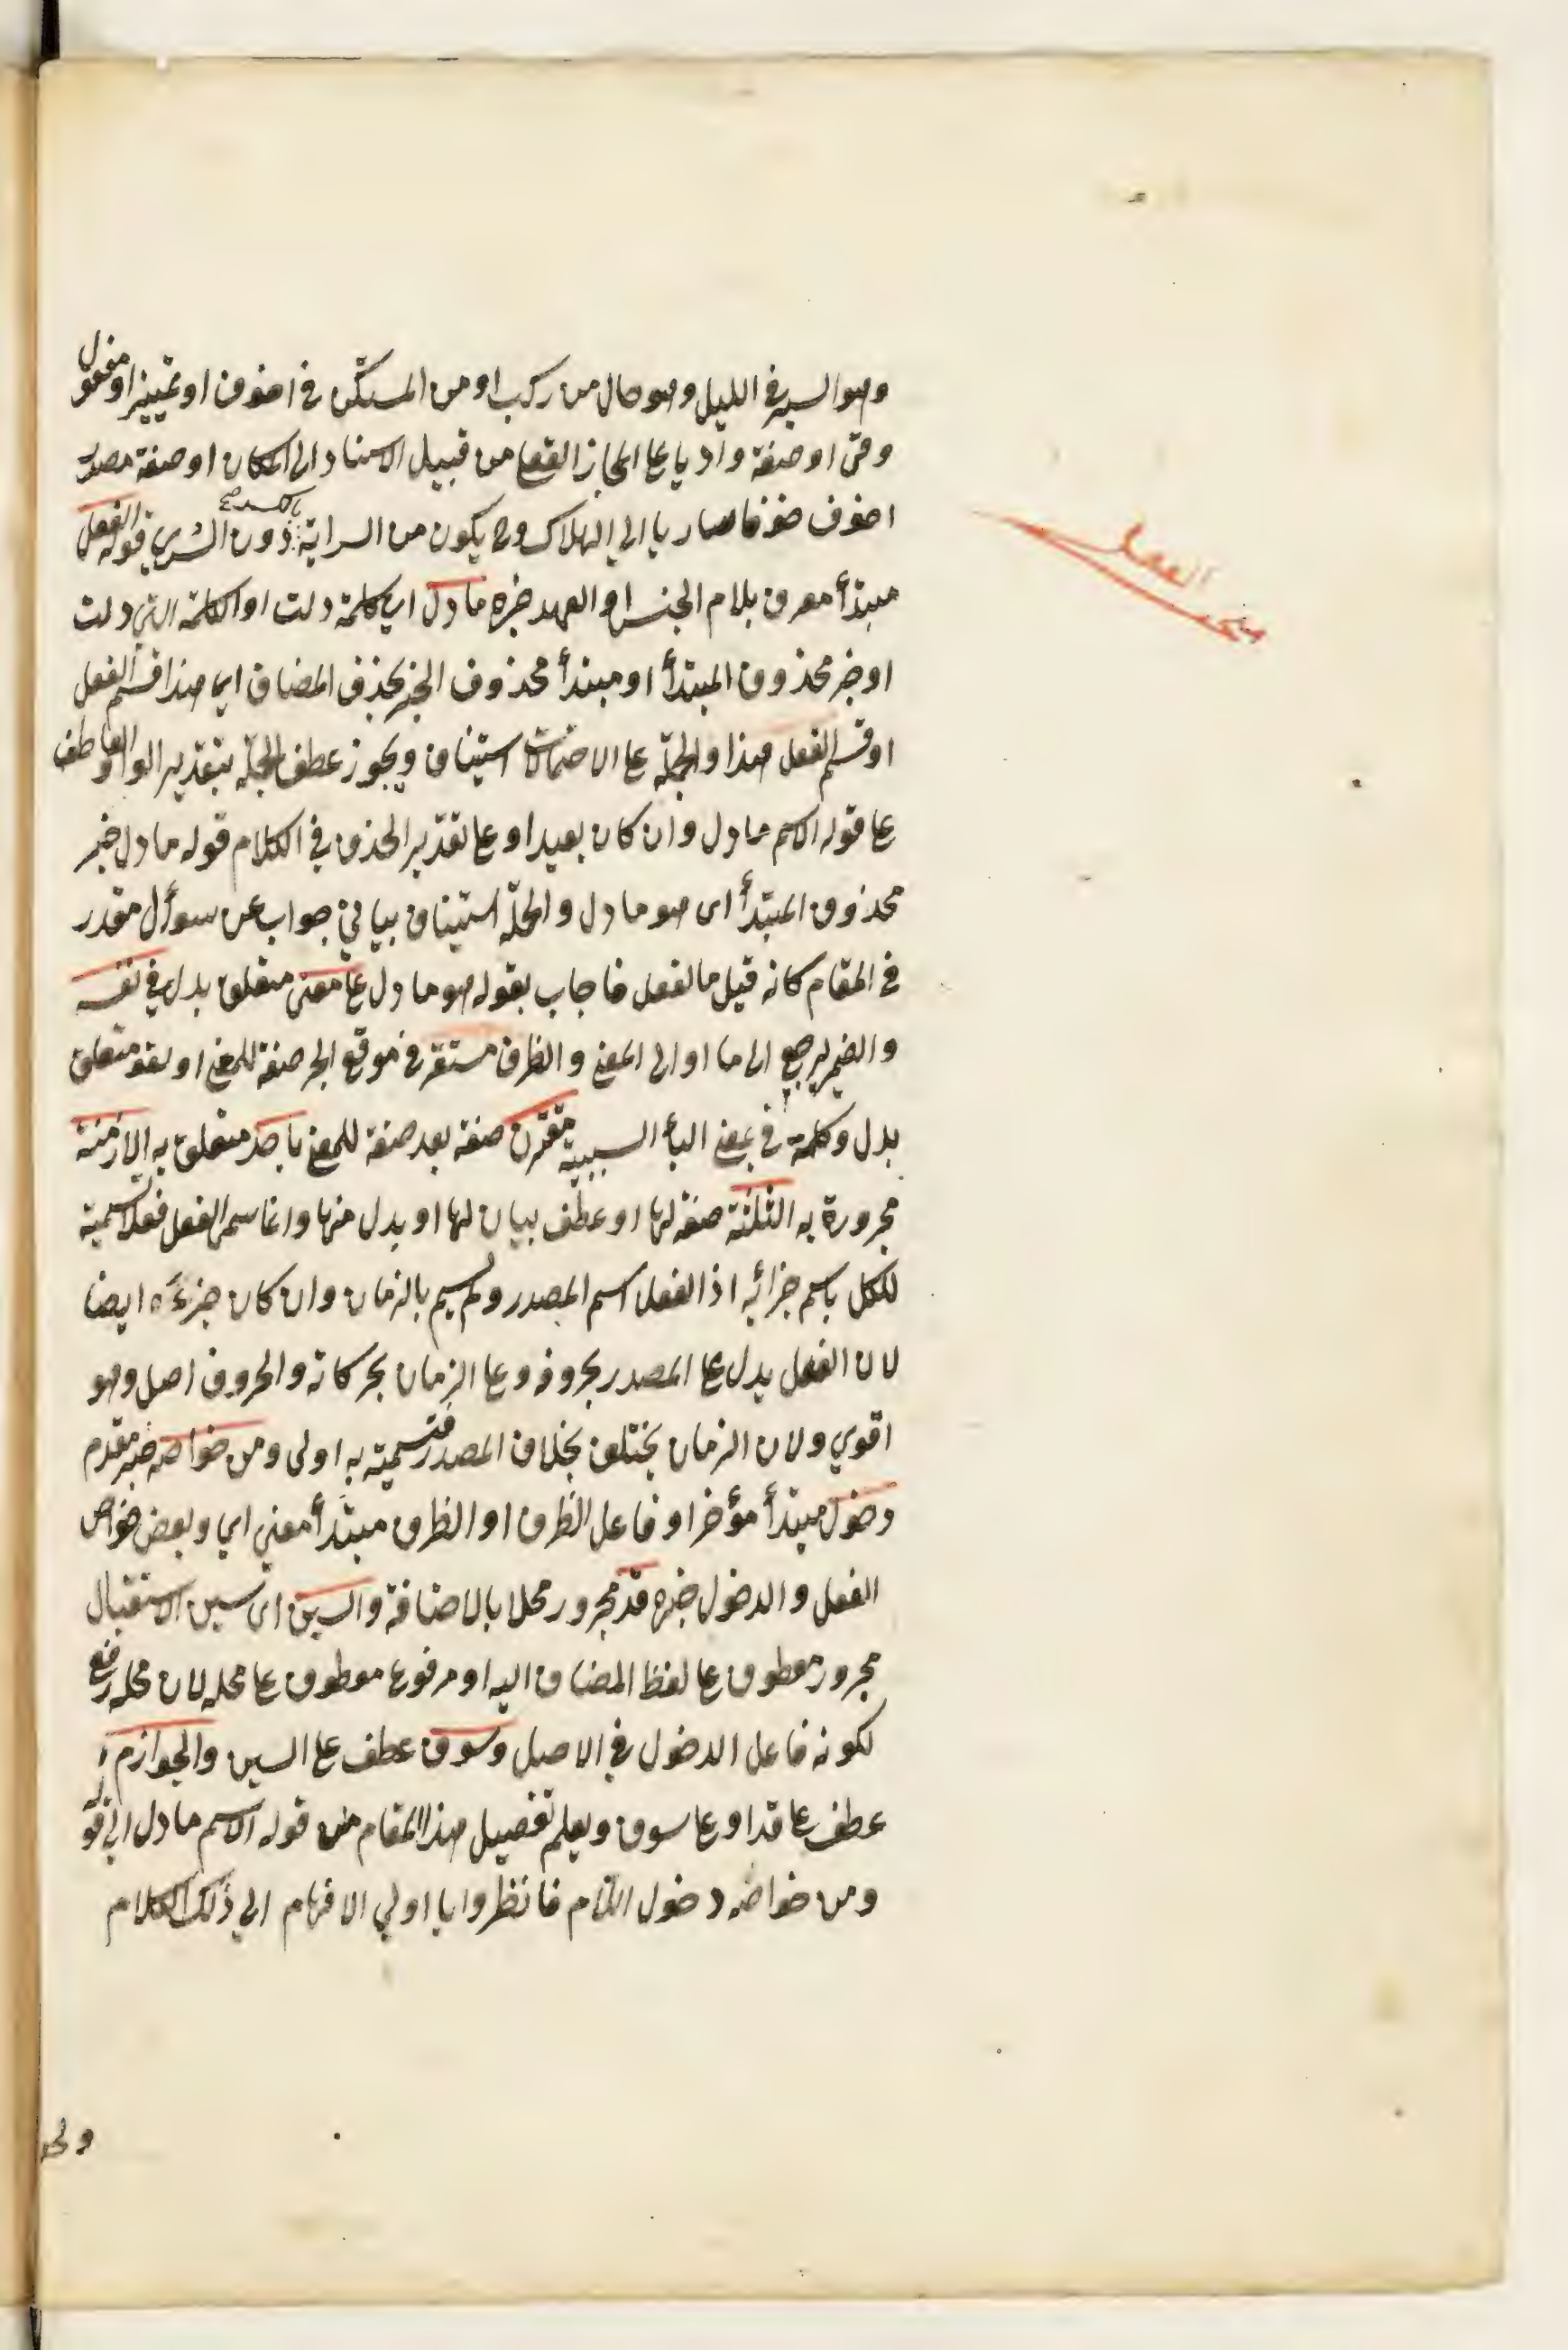 وهو السير في الليل وهو حال من ركب او من المستكن في اخوف او تمييز او مفعول
وقى او صفة واديا على المجاز العقلى من قبيل الاسناد الى المكان او صفة مصدر
اخوف خوفا ساريا الى الهلاك وح يكون من السراية دون السرى قوله الفعل
مبتدأ معرف بلام الجنس او العهد خبره ما دل اي كلمة دلت او الكلمة التي دلت
او خبر محذوف المبتدأ او مبتدأ محذوف الخبر بحذف المضاف اي هذا قسم الفعل
او قسم الفعل هذا والجملة على الاحتمالات استيناف ويجوز عطف الجملة بتقدير الواو العاطف
على قوله الاسم ما دل وان كان بعيدا وعلى تقدير الحذف في الكلام قوله ما دل خبر
محذوف المبتدأ اى هو ما دل والجملة استيناف بياني جواب عن سوأل مقدر
في المقام كانه قيل ما الفعل فاجاب بقوله هو ما دل على معنى متعلق بدل في نفسه
والضمير راجع الى ما او الى المعنى والظرف مستقر في موقع الجر صفة للمعنى او لغو متعلق
بدل وكلمة في بمعنى البأ السببية مقترن صفة بعد صفة للمعنى باحد متعلق به الازمنة
مجرورة به الثلثة صفة لها او عطف بيان لها او بدل منها وانما سمى الفعل فعلا تسمية
للكل باسم جزائه اذ الفعل اسم المصدر ولم يسم بالزمان وان كان جزءه ايضا
لان الفعل يدل على المصدر بحروفه وعلى الزمان بحركاته والحروف اصل وهو
اقوي ولان الزمان يختلف بخلاف المصدر فتسميته به اولى ومن خواصه خبر مقدم
دخول مبتدأ مؤخر او فاعل الظرف او الظرف مبتدأ معنى اي وبعض خواص
الفعل والدخول خبره قد مجرور محلا بالاضافة والسين اى سين الاستقبال
مجرور معطوف على لفظ المضاف اليه او مرفوع معطوف على محله لان محله رفع
لكونه فاعل الدخول في الاصل وسوف عطف على السين والجوازم
عطف على قد او على سوف ويعلم تفصيل هذا المقام من قوله الاسم ما دل الى قوله
ومن خواصه دخول اللام فانظروا يا اولي الافهام الي ذلك الكلام
الفعل
مبحث